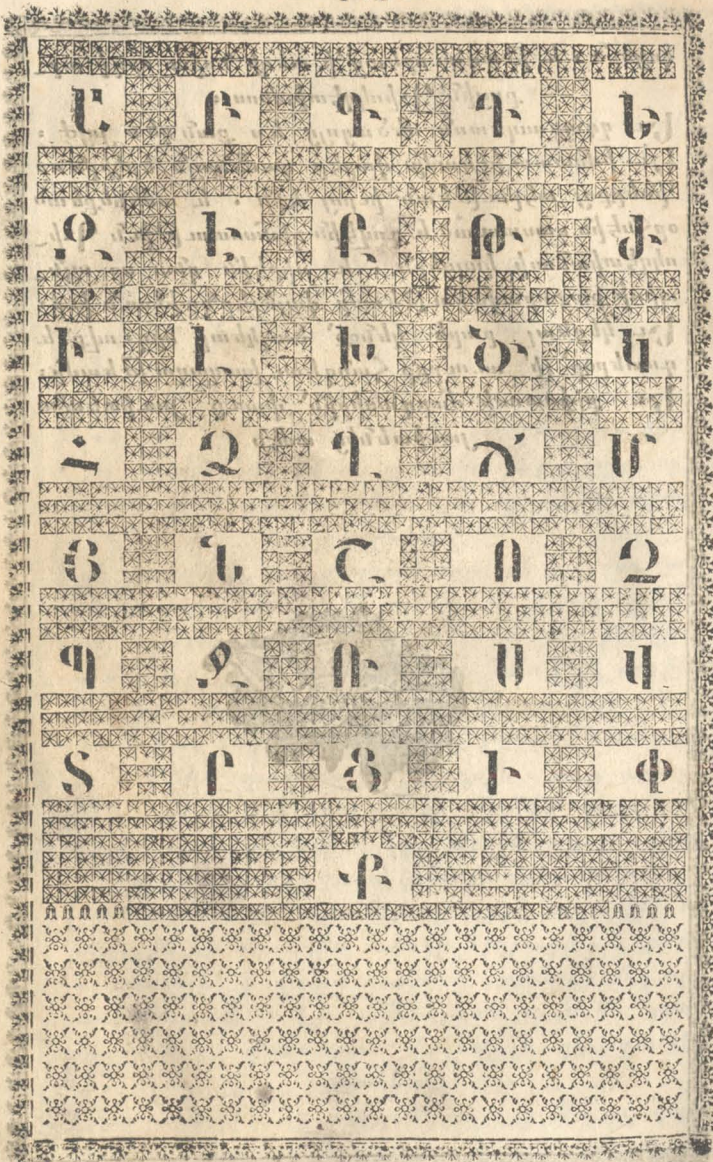 Ա Բ Գ Դ Ե
Զ Է Ը Թ Ժ
Ի Լ Խ Ծ Կ
Հ Ձ Ղ Ճ Մ
Յ Ն Շ Ո Չ
Պ Ջ Ռ Ս Վ
Տ Ր Ց Ւ Փ
Ք